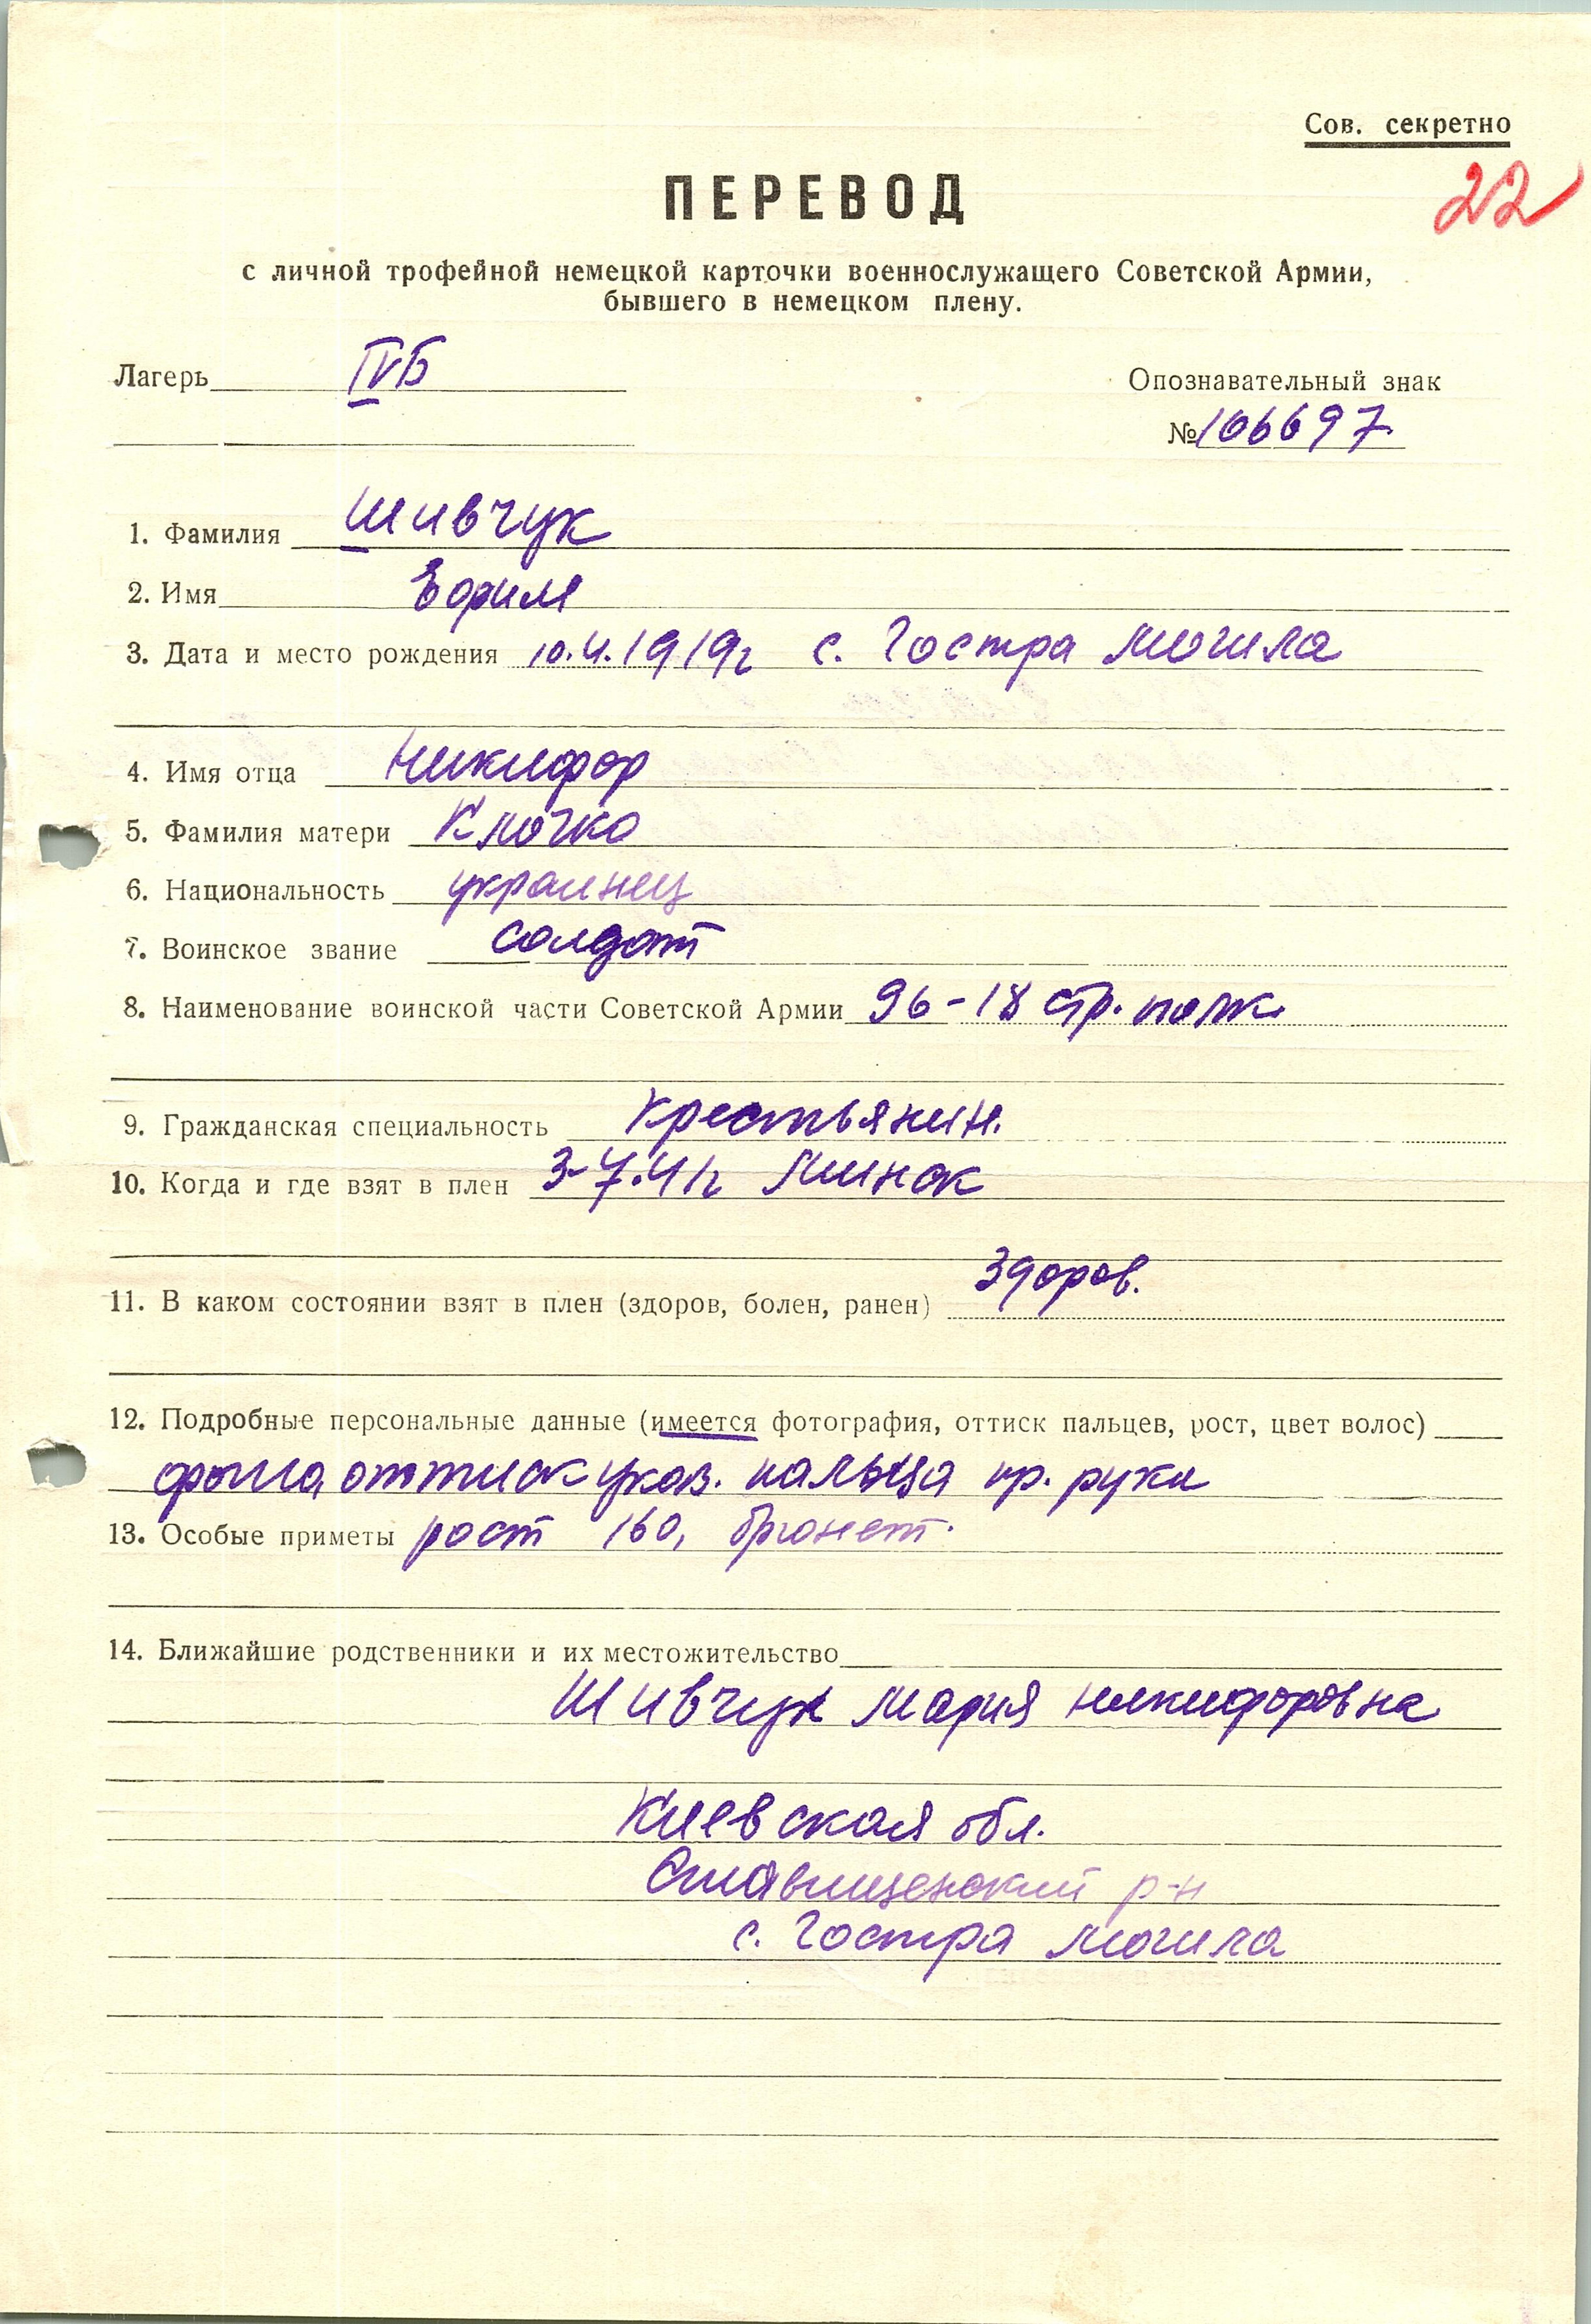 Сов. секретно
22
ПЕРЕВОД
с личной трофейной немецкой карточки военнослужащего Советской Армии,
бывшего в немецком плену.
Лагерь IVБ
Опознавательный знак
№ 106697
1. Фамилия Шивчук
2. Имя Ефим
3. Дата и место рождения 10.4.1919г с. Гостра Могила
4. Имя отца Никифор
5. Фамилия матери Клочко
6. Национальность украинец
7. Воинское звание солдат
8. Наименование воинской части Советской Армии 96-18 стр. полк.
9. Гражданская специальность крестьянин.
10. Когда и где взят в плен 3-7.41г Минск
11. В каком состоянии взят в плен (здоров, болен, ранен) здоров.
12. Подробные персональные данные (имеется фотография, оттиск пальцев, рост, цвет волос)
оттиск указ. пальца пр. руки
13. Особые приметы рост 160, брюнет.
14. Ближайшие родственники и их местожительство
Шивчук Мария Никифоровна
Киевская обл.
Ставищенский р-н
с. Гостра Могила